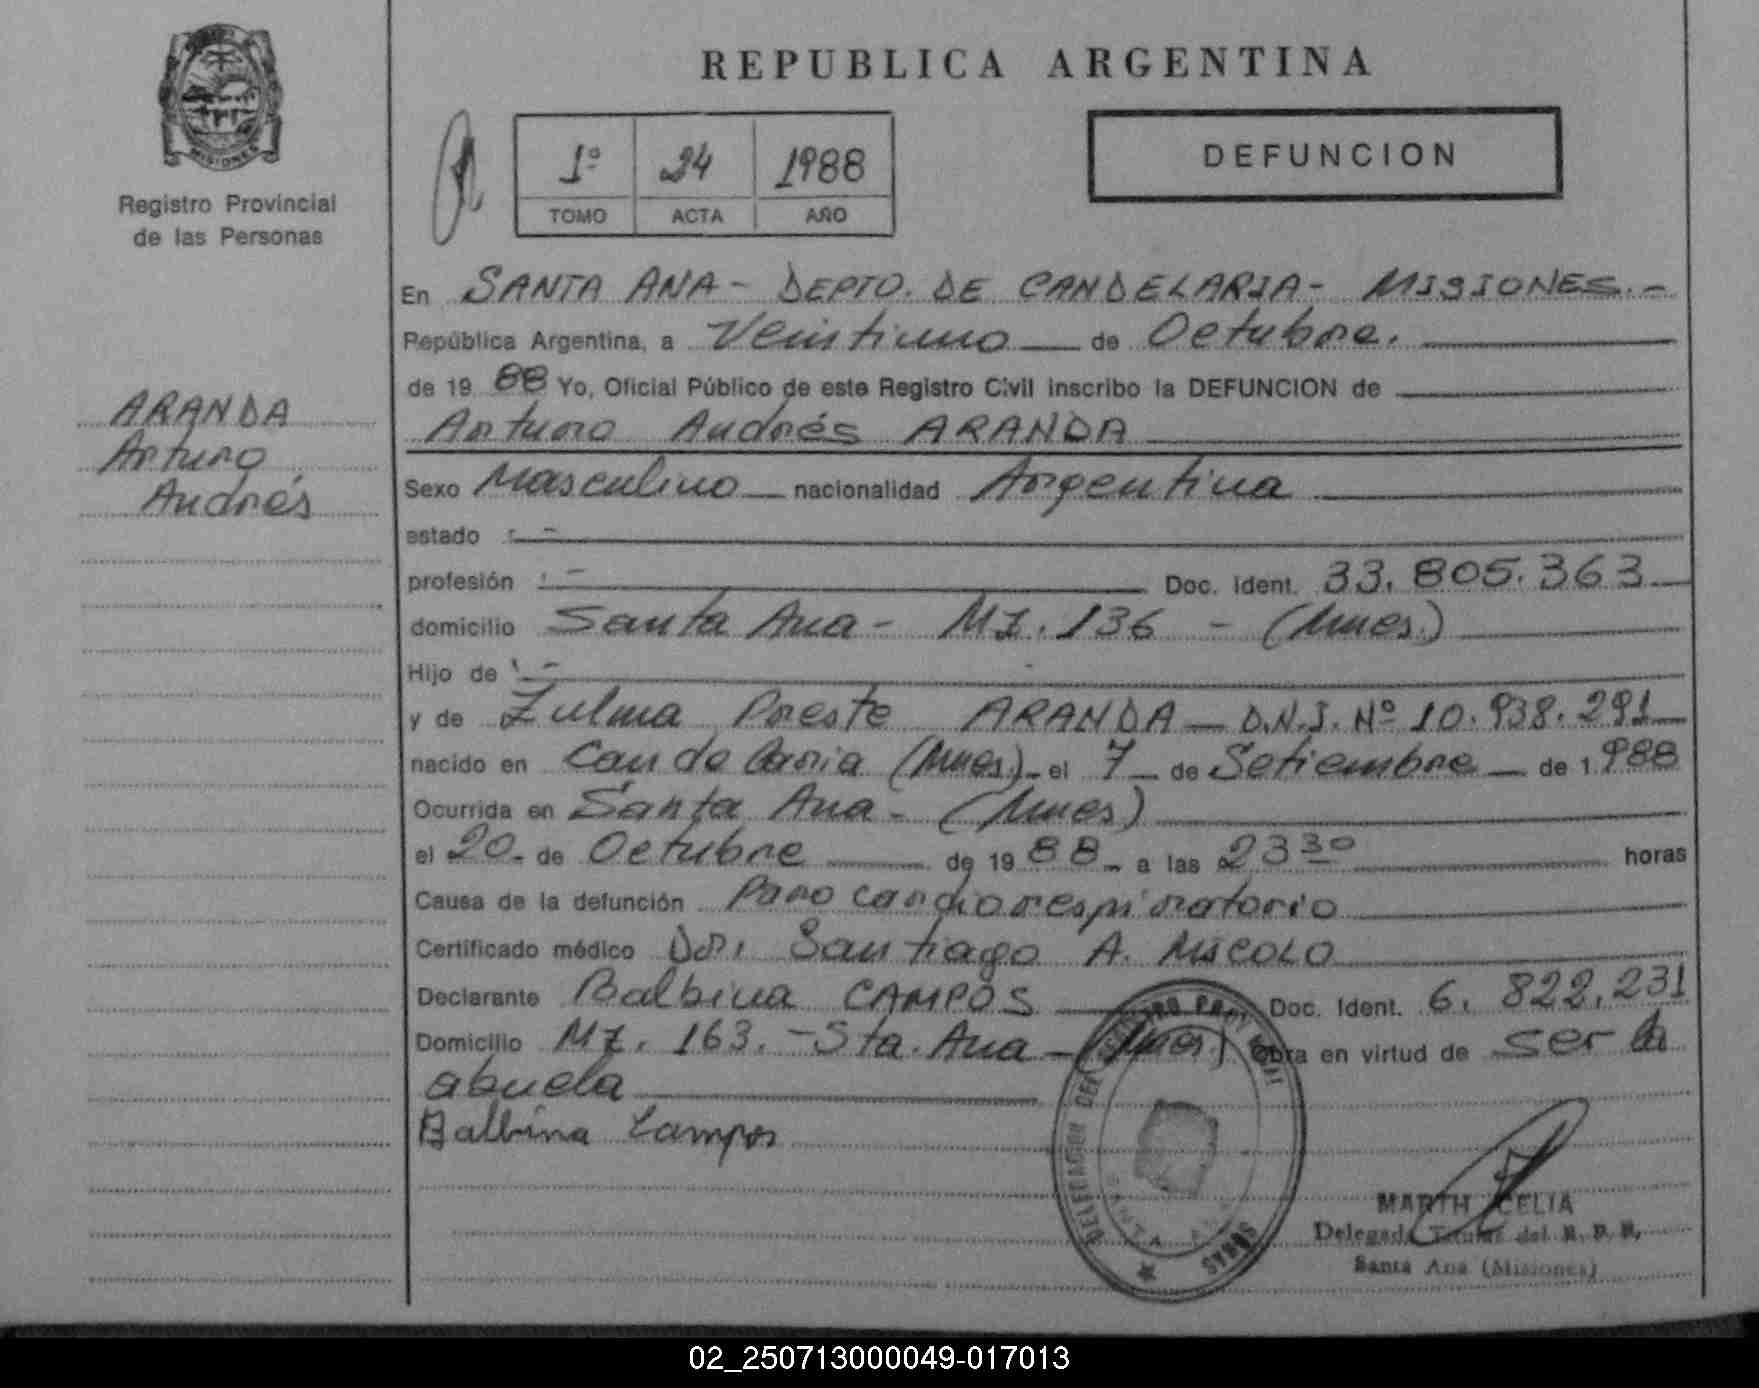 MISIONES
Registro Provincial
de las Personas
ARANDA
Arturo
Andrés
REPUBLICA ARGENTINA
1º 24 1988
TOMO ACTA AÑO
DEFUNCION
En SANTA ANA - DEPTO. DE CANDELARIA - MISIONES.-
República Argentina, a Veintiuno de Octubre.
de 19 88 Yo, Oficial Público de este Registro Civil inscribo la DEFUNCION de
Arturo Andrés ARANDA
Sexo Masculino nacionalidad Argentina
estado -
profesión - Doc. Ident. 33.805.363
domicilio Santa Ana - MZ. 136 - (Mnes.)
Hijo de -
y de Zulma Preste ARANDA - D.N.I. Nº 10.938.291
nacido en Candelaria (Mnes.)- el 7 de Setiembre de 1.988
Ocurrida en Santa Ana - (Mnes)
el 20 de Octubre de 19 88 a las 23 30 horas
Causa de la defunción Paro cardiorespiratorio
Certificado médico Dr. Santiago A.
Declarante Balbina CAMPOS Doc. Ident. 6.822.231
Domicilio MZ. 163. - Sta. Ana - (Mnes.) Obra en virtud de ser la
abuela
Balbina Campos
SANTA ANA
MARTH CELIA
Delegada Titular del R. P. P.
Santa Ana (Misiones)
02_250713000049-017013